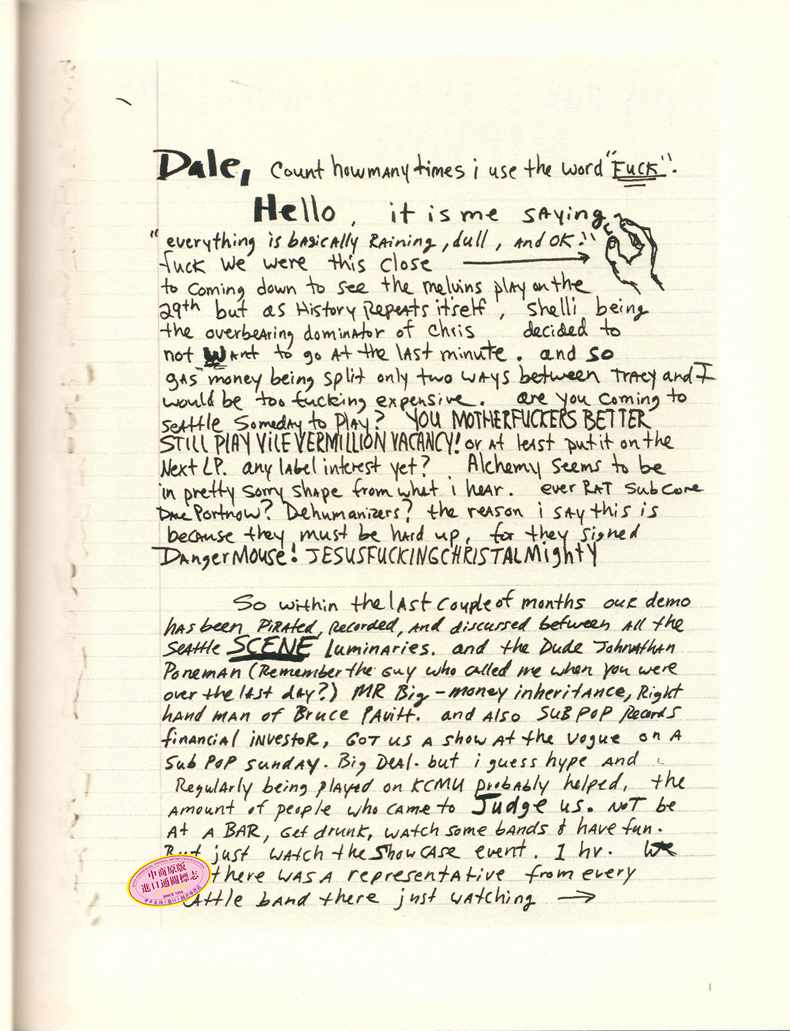 Dale, count how many times i use the word "Fuck".
Hello, it is me saying
"everything is basically Raining, dull, and OK."
fuck we were this close
to coming down to see the melvins play on the
29th but as History Repeats itself, Shelli being
the overbearing dominator of Chris decided to
not want to go at the last minute. and so
gas money being split only two ways between Tracy and I
would be too fucking expensive. are you coming to
seattle Someday to play? YOU MOTHERFUCKERS BETTER
STILL PLAY VILE VERMILLION VACANCY! or at least put it on the
Next LP. any label interest yet? Alchemy seems to be
in pretty sorry shape from what i hear. ever RAT Subcore
Portnow? Dehumanizers? the reason i say this is
because they must be hard up, for they signed
Danger Mouse! JESUSFUCKINGCHRISTALMIGHTY
So within the last couple of months our demo
has been Pirated, Recorded, and discussed between all the
Seattle SCENE Luminaries. and the Dude Johnathan
Poneman (Remember the guy who called me when you were
over the last day?) MR Big-money inheritance, Right
hand man of Bruce Pavitt. and Also SUB POP Records
financial investor, Got us a show at the Vogue on a
Sub Pop Sunday. Big Deal. but i guess hype and
Regularly being played on KCMU probably helped, the
amount of people who came to Judge us. NOT be
at a BAR, Get drunk, watch some bands & have fun.
But just watch the Showcase event. 1 hr. We
there was a representative from every
band there just watching →
中商原版
進口通關標志
1